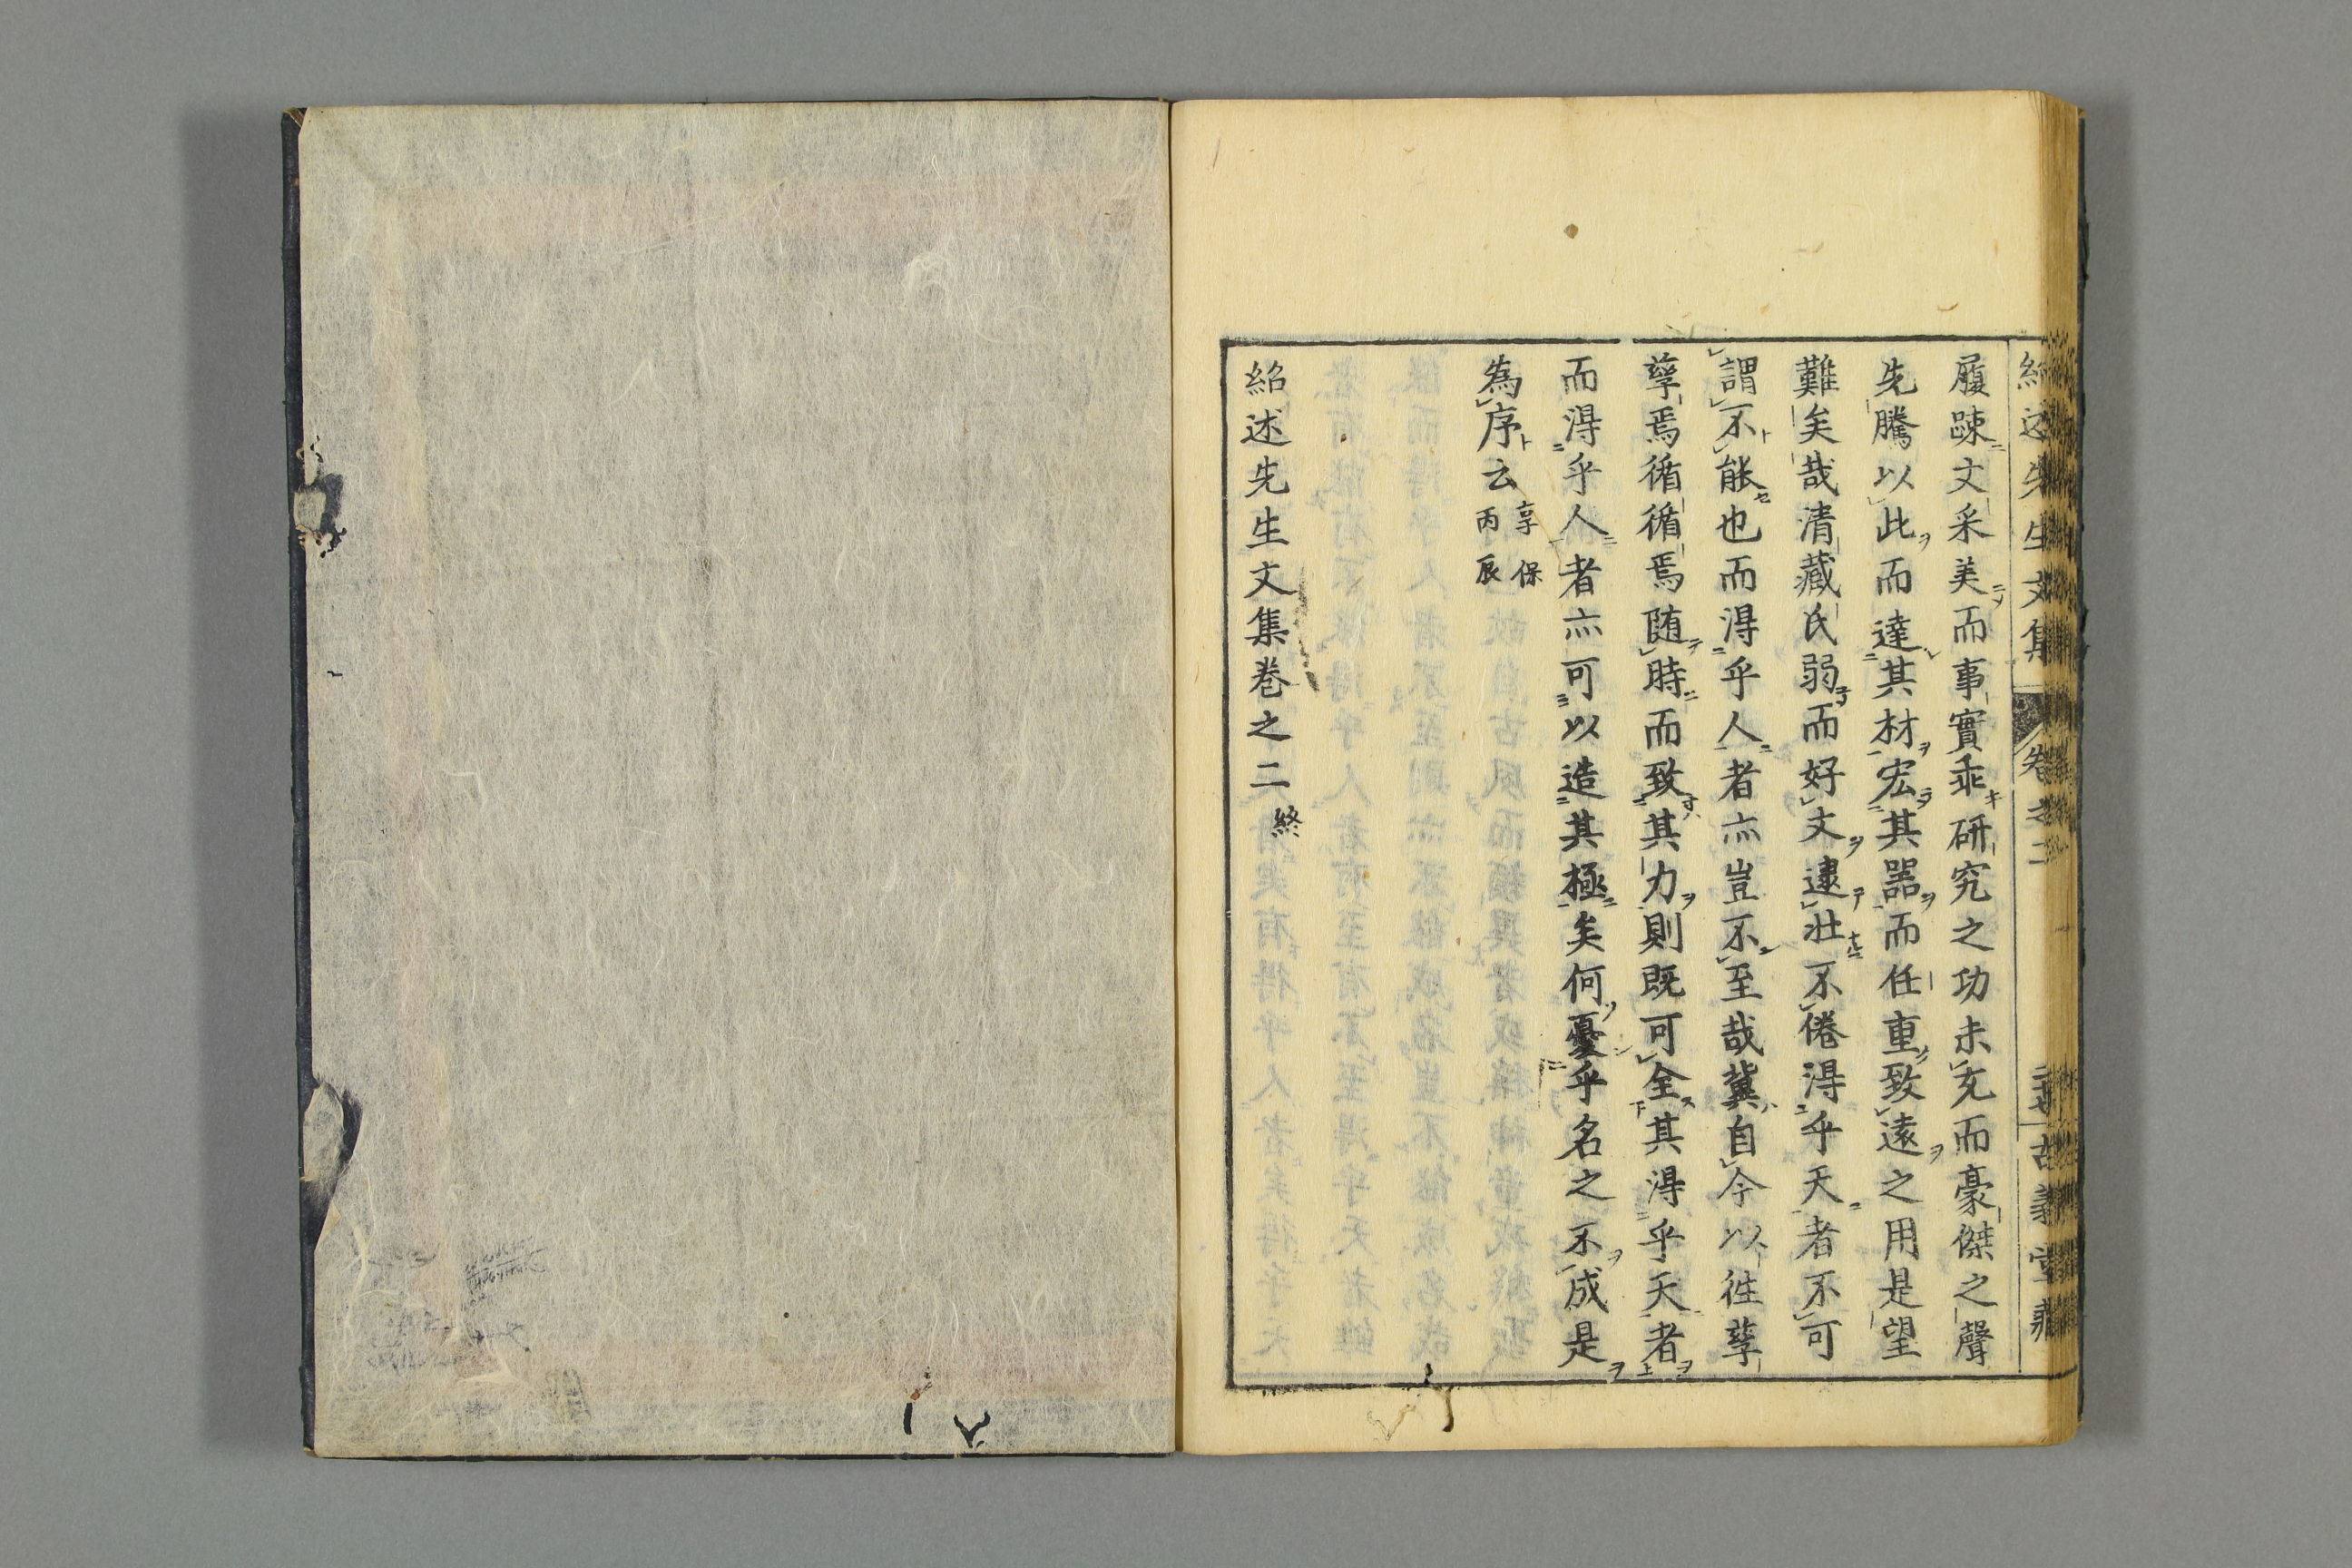 紹述先生文集
卷之二
古義堂藏
履踈文采美而事實乖研究之功未充而豪傑之聲
先騰以此而達其材宏其器而任重致遠之用是望
難矣哉清藏氏弱而好文逮壯不倦得乎天者不可
謂不能也而得乎人者亦豈不至哉冀自今以徃孳
孳焉循循焉随時而致其力則既可全其得乎天者
而得乎人者亦可以造其極矣何憂乎名之不成是
為序云 享保丙辰
紹述先生文集卷之二 終